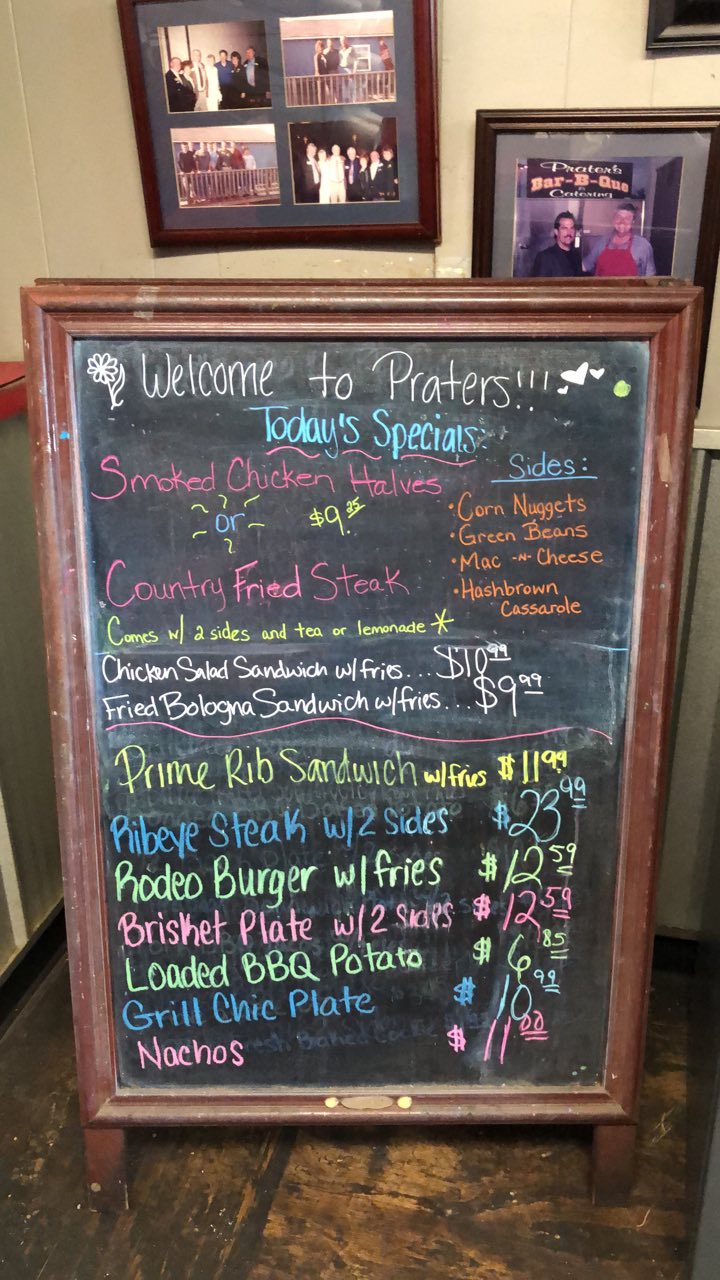 Prater's
Bar-B-Que
&
Catering
Welcome to Praters!!!
Today's Specials:
Smoked Chicken Halves
or $9.25
Country Fried Steak
Comes w/ 2 sides and tea or lemonade *
Sides:
• Corn Nuggets
• Green Beans
• Mac -N- Cheese
• Hashbrown
Cassarole
Chicken Salad Sandwich w/fries... $10.99
Fried Bologna Sandwich w/fries... $9.99
Prime Rib Sandwich w/fries $11.99
Ribeye Steak w/2 Sides $23.99
Rodeo Burger w/fries $12.59
Brisket Plate w/2 sides $12.59
Loaded BBQ Potato $6.85
Grill Chic Plate $10.99
Nachos $11.00